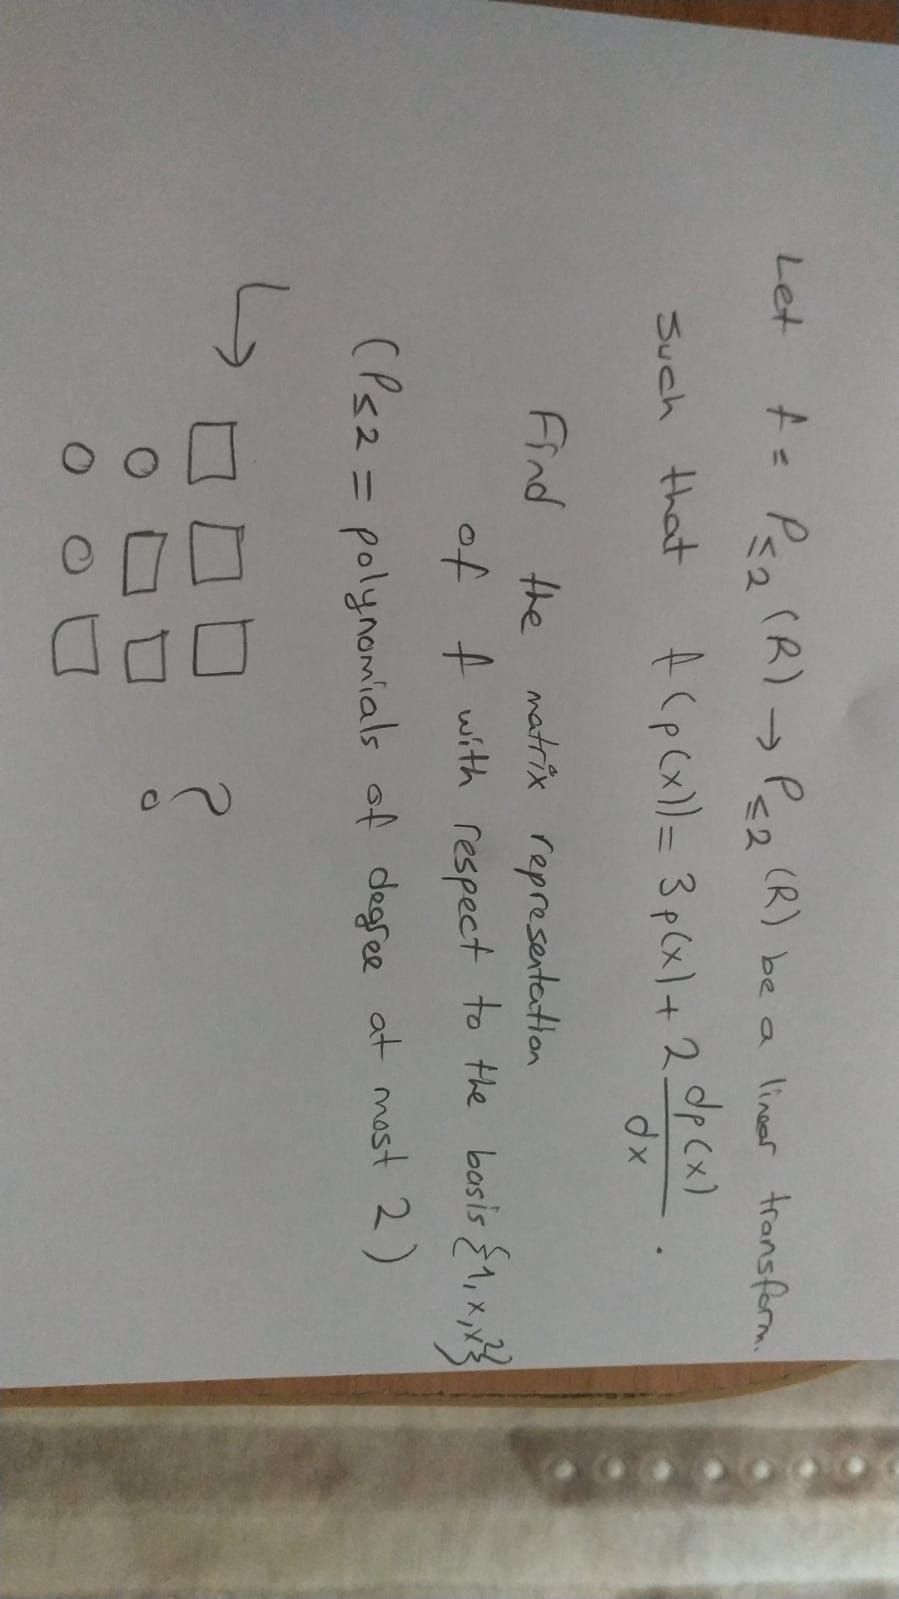 Let f = P≤2 (R) → P≤2 (R) be a linear transform.
such that f(p(x)) = 3p(x) + 2 dp(x)/dx .
Find the matrix representation
of f with respect to the basis {1, x, x²}
(P≤2 = polynomials of degree at most 2)
↳ □ □ □ ?
0 □ □
0 0 □